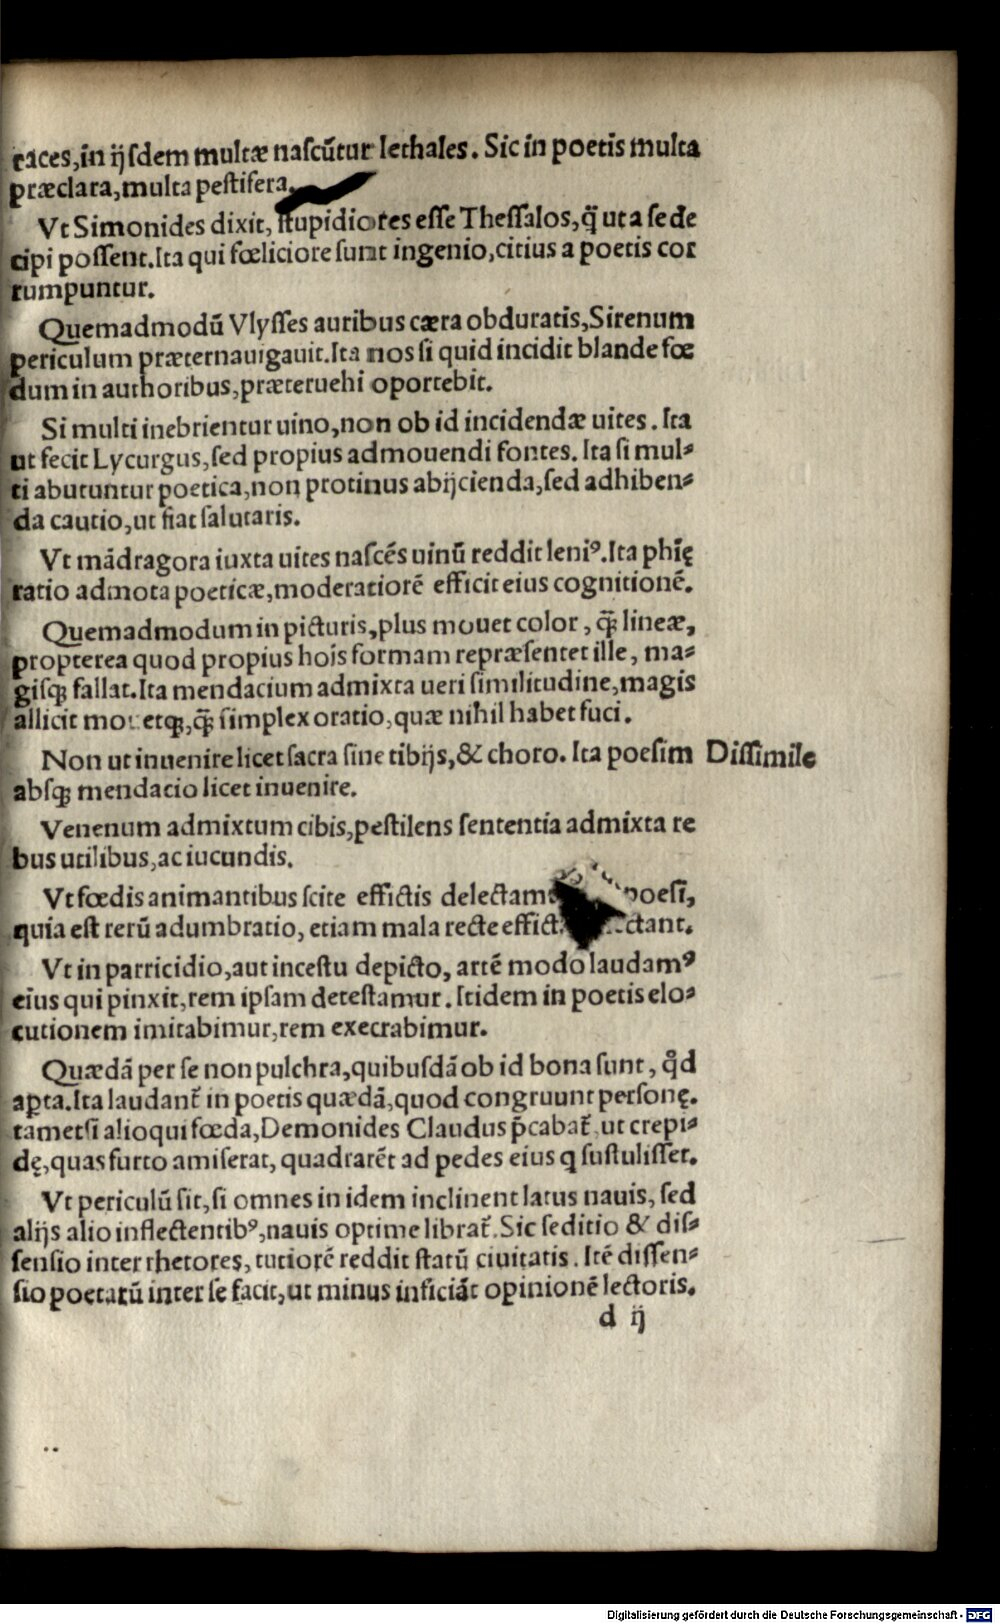 caces, in ijsdem multæ nascũtur lethales. Sic in poetis multa
præclara, multa pestifera.
Vt Simonides dixit, stupidiores esse Thessalos, q̃ ut a se de
cipi possent. Ita qui fœliciore sunt ingenio, citius a poetis cor
rumpuntur.
Quemadmodũ Vlysses auribus cæra obduratis, Sirenum
periculum præternauigauit. Ita nos si quid incidit blande fœ
dum in authoribus, præteruehi oportebit.
Si multi inebrientur uino, non ob id incidendæ uites. Ita
ut fecit Lycurgus, sed propius admouendi fontes. Ita si mul⸗
ti abutuntur poetica, non protinus abijcienda, sed adhiben⸗
da cautio, ut fiat salutaris.
Vt mãdragora iuxta uites nascẽs uinũ reddit leniꝰ. Ita phię
ratio admota poeticæ, moderatiorẽ efficit eius cognitionẽ.
Quemadmodum in picturis, plus mouet color, q̃ lineæ,
propterea quod propius hoīs formam repræsentet ille, ma⸗
gisq; fallat. Ita mendacium admixta ueri similitudine, magis
allicit mouetq;, q̃ simplex oratio, quæ nihil habet fuci.
Non ut inuenire licet sacra sine tibijs, & choro. Ita poesim
Dissimile
absq; mendacio licet inuenire.
Venenum admixtum cibis, pestilens sententia admixta re
bus utilibus, ac iucundis.
Vt fœdis animantibus scite effictis delectam poesī,
quia est rerũ adumbratio, etiam mala recte effict ctant.
Vt in parricidio, aut incestu depicto, artẽ modo laudamꝰ
eius qui pinxit, rem ipsam detestamur. Itidem in poetis elo⸗
cutionem imitabimur, rem execrabimur.
Quædã per se non pulchra, quibusdã ob id bona sunt, qd̓
apta. Ita laudant̃ in poetis quædã, quod congruunt personę.
tametsi alioqui fœda, Demonides Claudus p̃cabat̃, ut crepi⸗
dę, quas furto amiserat, quadrarẽt ad pedes eius q sustulisset.
Vt periculũ sit, si omnes in idem inclinent latus nauis, sed
alijs alio inflectentibꝰ, nauis optime librat̃. Sic seditio & dis⸗
sensio inter rhetores, tutiorẽ reddit statũ ciuitatis. Itẽ dissen⸗
sio poetarũ inter se facit, ut minus inficiãt opinionẽ lectoris.
d ij
Digitalisierung gefördert durch die Deutsche Forschungsgemeinschaft - DFG